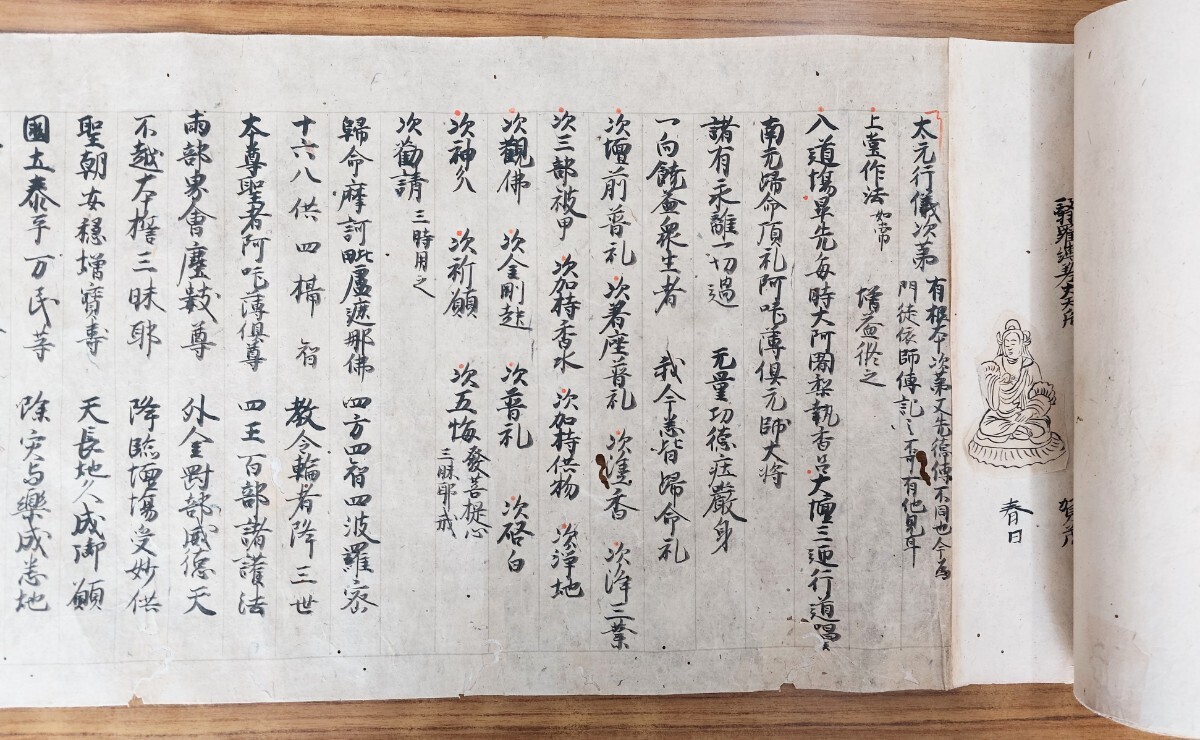 賀茂
春日
太元行儀次第
有根本次第又者德傳不同也今為
門徒依師傳記之不可有他見耳
上堂作法 如常 增益修之
入道場畢先每時大阿闍梨執香呂大壇三迊行道唱
南无歸命頂礼阿吒薄俱元師大将
諸有永離一切過 无量功德庄嚴身
一向饒益衆生者 我今悉皆歸命礼
次壇前普礼 次着座普礼 次塗香 次浄三業
次三部被甲 次加持香水 次加持供物 次浄地
次觀佛 次金剛起 次普礼 次啓白
次神分 次祈願 次五悔 發菩提心 三昧耶戒
次勸請 三時用之
歸命摩訶毗盧遮那佛 四方四智四波羅蜜
十六八供四攝智 教令輪者降三世
本尊聖者阿吒薄俱尊 四王百部諸護法
兩部界會塵數尊 外金剛部威德天
不越本誓三昧耶 降臨壇場受妙供
聖朝安穩增寶壽 天長地久成御願
國土泰平万民等 除灾与樂成悉地